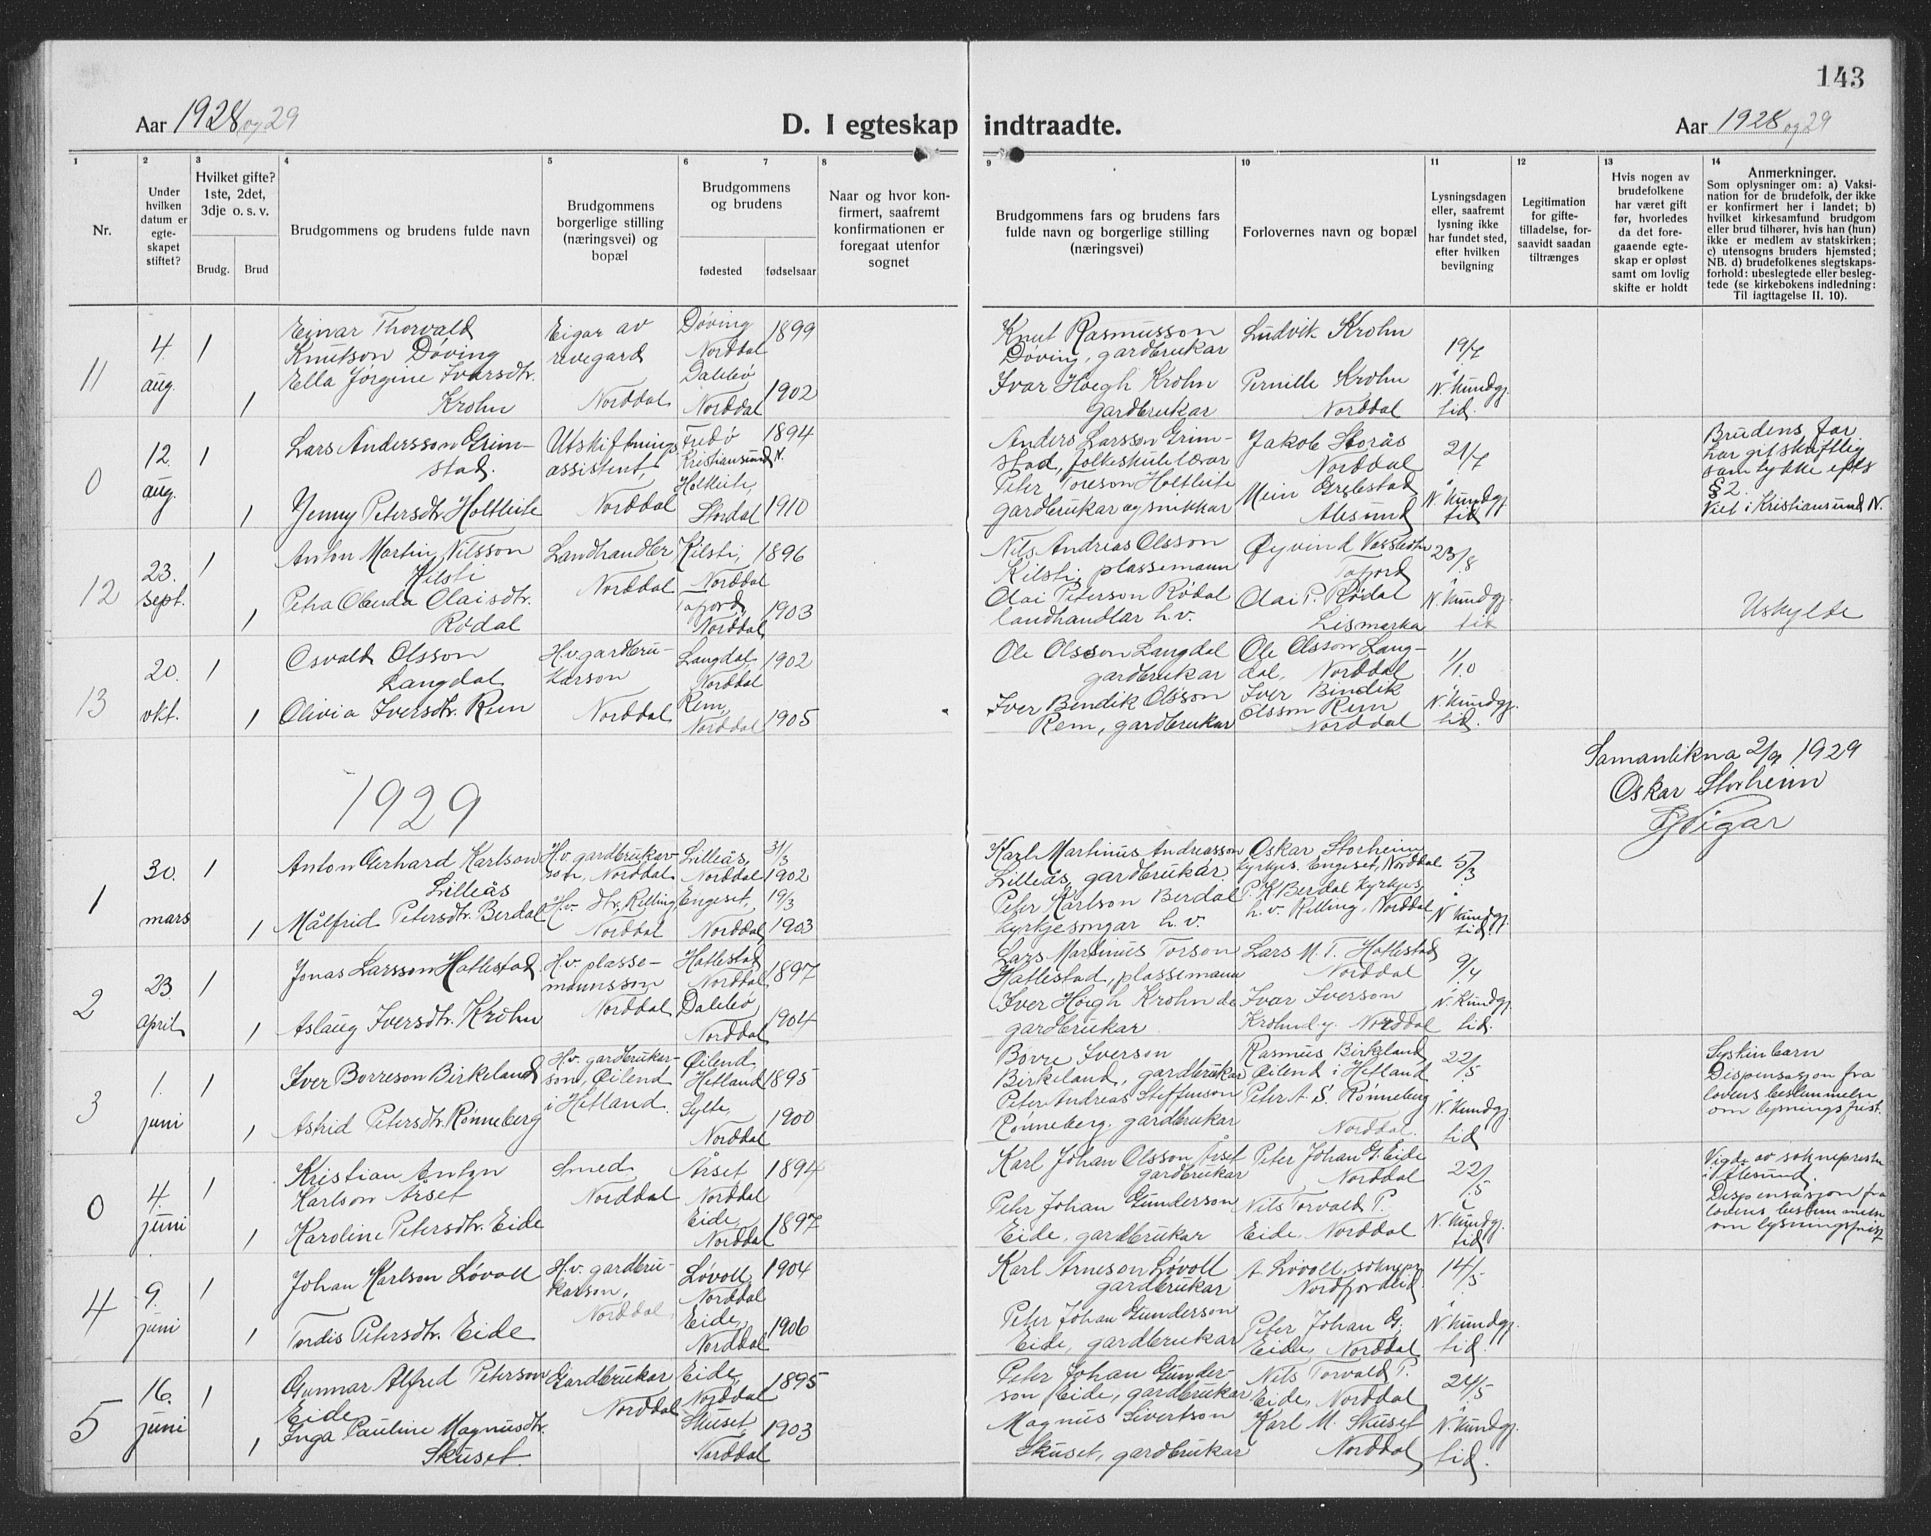 143
Aar 1928 og 29
D. I egteskap indtraadte.
Aar 1928 og 29
1
2
3
4
5
6
7
8
9
10
11
12
13
14
Nr.
Under
hvilken
datum er
egte-
skapet
stiftet?
Hvilket gifte?
1ste, 2det,
3dje o. s. v.
Brudg.
Brud
Brudgommens og brudens fulde navn
Brudgommens
borgerlige stilling
(næringsvei) og
bopæl
Brudgommens
og brudens
fødested
fødselsaar
Naar og hvor kon-
firmert, saafremt
konfirmationen er
foregaat utenfor
sognet
Brudgommens fars og brudens fars
fulde navn og borgerlige stilling
(næringsvei)
Forlovernes navn og bopæl
Lysningsdagen
eller, saafremt
lysning ikke
har fundet sted,
efter hvilken
bevilgning
Legitimation
for gifte-
tilladelse, for-
saavidt saadan
tiltrænges
Hvis nogen av
brudefolkene
har været gift
før, hvorledes
da det fore-
gaaende egte-
skap er opløst
samt om lovlig
skifte er holdt
Anmerkninger.
Som oplysninger om: a) Vaksi-
nation for de brudefolk, der ikke
er konfirmert her i landet; b)
hvilket kirkesamfund brudgom
eller brud tilhører, hvis han (hun)
ikke er medlem av statskirken;
c) utensogns bruders hjemsted;
NB. d) brudefolkenes slegtskaps-
forhold: ubeslegtede eller besleg-
tede (se kirkebokens indledning:
Til iagttagelse II. 10).
11
4.
aug.
1
1
Einar Thorvald
Knutson Døving
Ella Jørgine Ivarsdtr.
Krohn
Eigar av
revegard
Norddal
Døving
Norddal
Dalebø
Norddal
1899
1902
Knut Rasmusson
Døving, gardbrukar
Ivar Høegh Krohn
gardbrukar
Ludvik Krohn
Pernille Krohn
Norddal
19/7
N. Kundgj.
tid.
0
12.
aug.
1
1
Lars Andersson Grim-
stad.
Jenny Petersdtr. Holtleite
Utskiftnings
assistent,
Norddal
Fredø
Kristiansund N.
Holtleite
Stordal
1894
1910
Anders Larsson Grim-
stad, folkeskulelærar
Peter Toreson Holtleite
gardbrukar og snikkar
Jakob Storås
Norddal
Alesund
21/7
N. Kundgj.
tid
Brudens far
har git skriftlig
samtykke efter
§ 2.
Viet i Kristiansund N.
12
23.
sept.
1
1
Anton Martin Nilsson
Kilsti
Petra Oluda Olaisdtr.
Rødal
Landhandler
Norddal
Kilsti,
Norddal
Tafjord,
Norddal,
1896
1903
Nils Andreas Olsson
Kilsti, plassemann
Olai Peterson Rødal
landhandlar h.v.
Øyvind
Tafjord
Olai P. Rødal
Lismarka
23/8
N. Kundgj.
tid
Uskylte
13
20.
okt.
1
1
Osvald Olsson
Langdal
Olivia Iversdtr. Rem
H.v. gardbru-
karson
Norddal
Langdal,
Norddal
Rem,
Norddal
1902
1905
Ole Olsson Langdal
gardbrukar
Iver Bendik Olsson
Rem, gardbrukar
Ole Olsson Lang-
dal, Norddal
Iver Bindik
Olsson Rem
Norddal
1/10
N. Kundgj.
tid.
1929
Samanlikna 2/9 1929
Oskar Storheim
1
30.
mars
1
1
Anton Gerhard Karlson
Lilleås
Målfrid Petersdtr. Berdal
H.v. gardbrukar-
son, Norddal
H.v. dtr, Relling,
Norddal
Lilleås,
Norddal
Engeset,
Norddal,
31/3
1902
19/3
1903
Karl Martinus Andreasson
Lilleås, gardbrukar.
Peter Karlson Berdal
kyrkjesongar h.v.
Oskar Storheim
kyrkjes. Engeset, Norddal
P. K. Berdal kyrkjes
h.v. Relling, Norddal
5/3
N. Kundgj.
tid.
2
23
April
1
1
Jonas Larsson Hatlestad
Aslaug Iversdtr. Krohn
H.v. plasse-
mannsson
Norddal
Hatlestad
Norddal,
Dalebø
Norddal
1897
1904
Lars Martinus Torson
Hatlestad, plassemann
Iver Høigh Krohn de
gardbrukar
Lars M. T. Hatlestad
Norddal
Ivar Iverson
Krohn d.y. Norddal
9/4
N. Kundgj
tid.
3
1.
juni
1
1
Iver Børreson Birkeland
Astrid Petersdtr. Rønneberg
H.v. gardbrukar-
son, Øilend
i Hetland.
Øilend
Hetland
Sylte,
Norddal
1895
1900
Børre Iverson
Birkeland, gardbrukar
Peter Andreas Steffenson
Rønneberg. gardbrukar
Rasmus Birkeland
Øilend i Hetland
Peter A. S. Rønneberg
Norddal.
22/5
N. Kundgj.
tid
Syskinbarn
Dispensasjon fra
lovens bestemmelse
om lysningsfrist.
0
4.
juni
1
1
Kristian Anton
Karlson Årset
Karoline Petersdtr. Eide
Smed
Norddal
Årset
Norddal
Eide,
Norddal
1894
1897
Karl Johan Olsson Årset
gardbrukar
Peter Johan Gunderson
Eide, gardbrukar
Peter Johan G. Eide
Norddal
Nils Torvald P.
Eide, Norddal
22/5
N. Kundgj.
tid
Vigde av sokneprest
i Alesund.
Dispensasjon fra
lovens bestemmelse
om lysningsfrist
4
9.
juni
1
1
Johan Karlson Løvoll
Tordis Petersdtr. Eide
H.v. gardbru-
karson,
Norddal
Løvoll
Norddal
Eide,
Norddal
1904
1906
Karl Arneson Løvoll
gardbrukar
Peter Johan Gunderson
Eide, gardbrukar
A. Løvoll, soknepr
Nordfjordeid
Peter Johan G.
Eide, Norddal
14/5
N. Kundgj.
tid.
5
16.
juni
1
1
Gunnar Alfred Peterson
Eide
Inga Pauline Magnusdtr.
Skuset.
Gardbrukar
Norddal
Eide,
Norddal
Skuset,
Norddal
1895
1903
Peter Johan Gunder-
son Eide, gardbrukar
Magnus Sivertson
Skuset, gardbrukar
Nils Torvald P.
Eide, Norddal
Karl M. Skuset
Norddal
24/5
N. Kundgj.
tid.